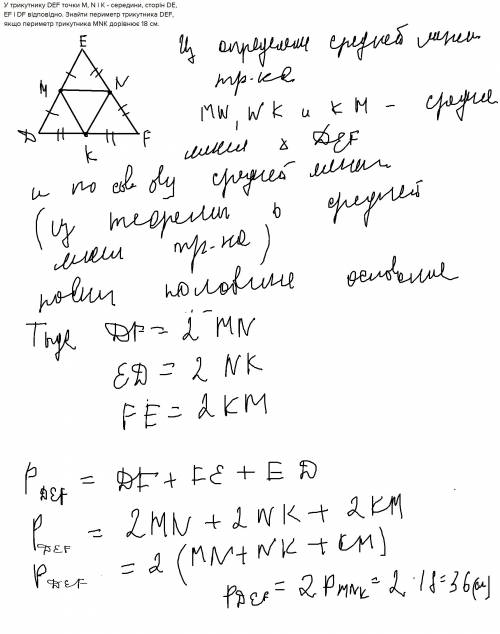 У трикутнику DEF точки M, N і K - середини, сторін DE,
EF і DF відповідно. Знайти периметр трикутника DEF,
якщо периметр трикутника MNK дорівнює 18 см.
E
M
N
D
K
F
Из определени средней линии
тр-ка
MN, NK и KM - средние
линии к DEF
и по св-ву средней линии
(из теоремы о средней
линии тр-ка)
равны половине основание
Тогда DF = 2 MN
ED = 2 NK
FE = 2 KM
P DEF = DF + FE + ED
P DEF = 2MN + 2NK + 2KM
P DEF = 2 (MN + NK + KM)
P DEF = 2 P MNK = 2 · 18 = 36 (см)